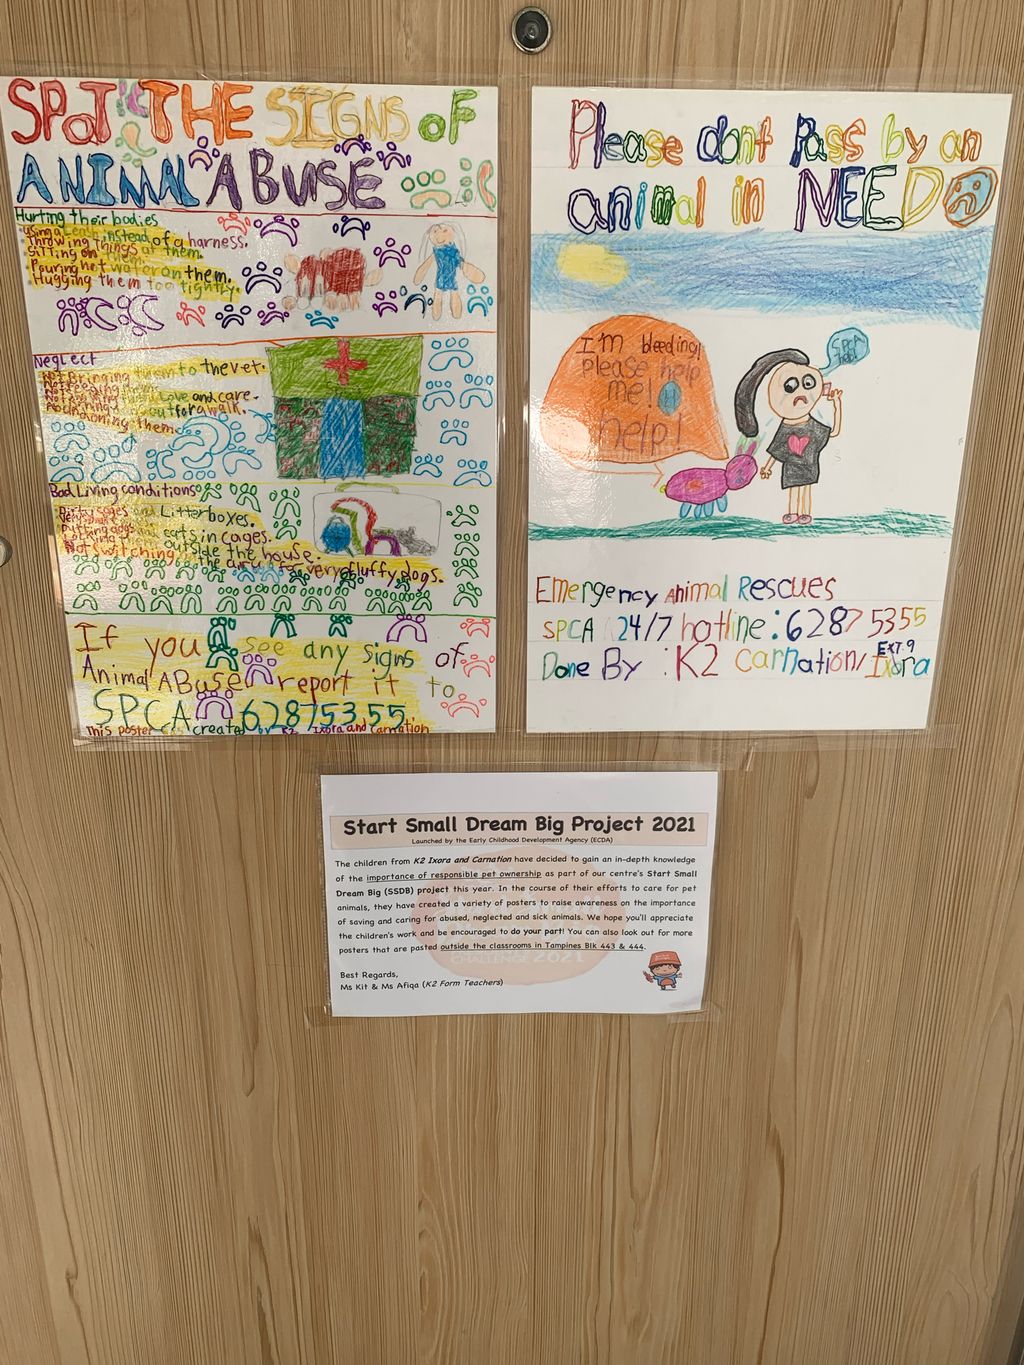 SPOT THE SIGNS OF
ANIMAL ABUSE
Hurting their bodies
using a Leash instead of a harness.
Throwing things at them.
Sitting on them.
Pouring hot water on them.
Hugging them too tightly.
Neglect
Not Bringing them to the vet.
Not feeding them.
love and care.
out for a walk.
Abandoning them.
Bad Living conditions
Dirty cages and Litterboxes.
cats in cages.
outside the house.
Not switching the aircon for very fluffy dogs.
If you see any signs of
Animal ABuse report it to
SPCA 62875355
This poster is created by K2 Ixora and Carnation
Please dont Pass by an
animal in NEED
I'm bleeding!
please help
me!
help!
SPCA
help!
Emergency Animal Rescues
SPCA 24/7 hotline: 6287 5355
EXT.9
Done By : K2 Carnation/Ixora
Start Small Dream Big Project 2021
Launched by the Early Childhood Development Agency (ECDA)
The children from K2 Ixora and Carnation have decided to gain an in-depth knowledge
of the importance of responsible pet ownership as part of our centre's Start Small
Dream Big (SSDB) project this year. In the course of their efforts to care for pet
animals, they have created a variety of posters to raise awareness on the importance
of saving and caring for abused, neglected and sick animals. We hope you'll appreciate
the children's work and be encouraged to do your part! You can also look out for more
posters that are pasted outside the classrooms in Tampines Blk 443 & 444.
CHALLENGE 2021
Best Regards,
Ms Kit & Ms Afiqa (K2 Form Teachers)